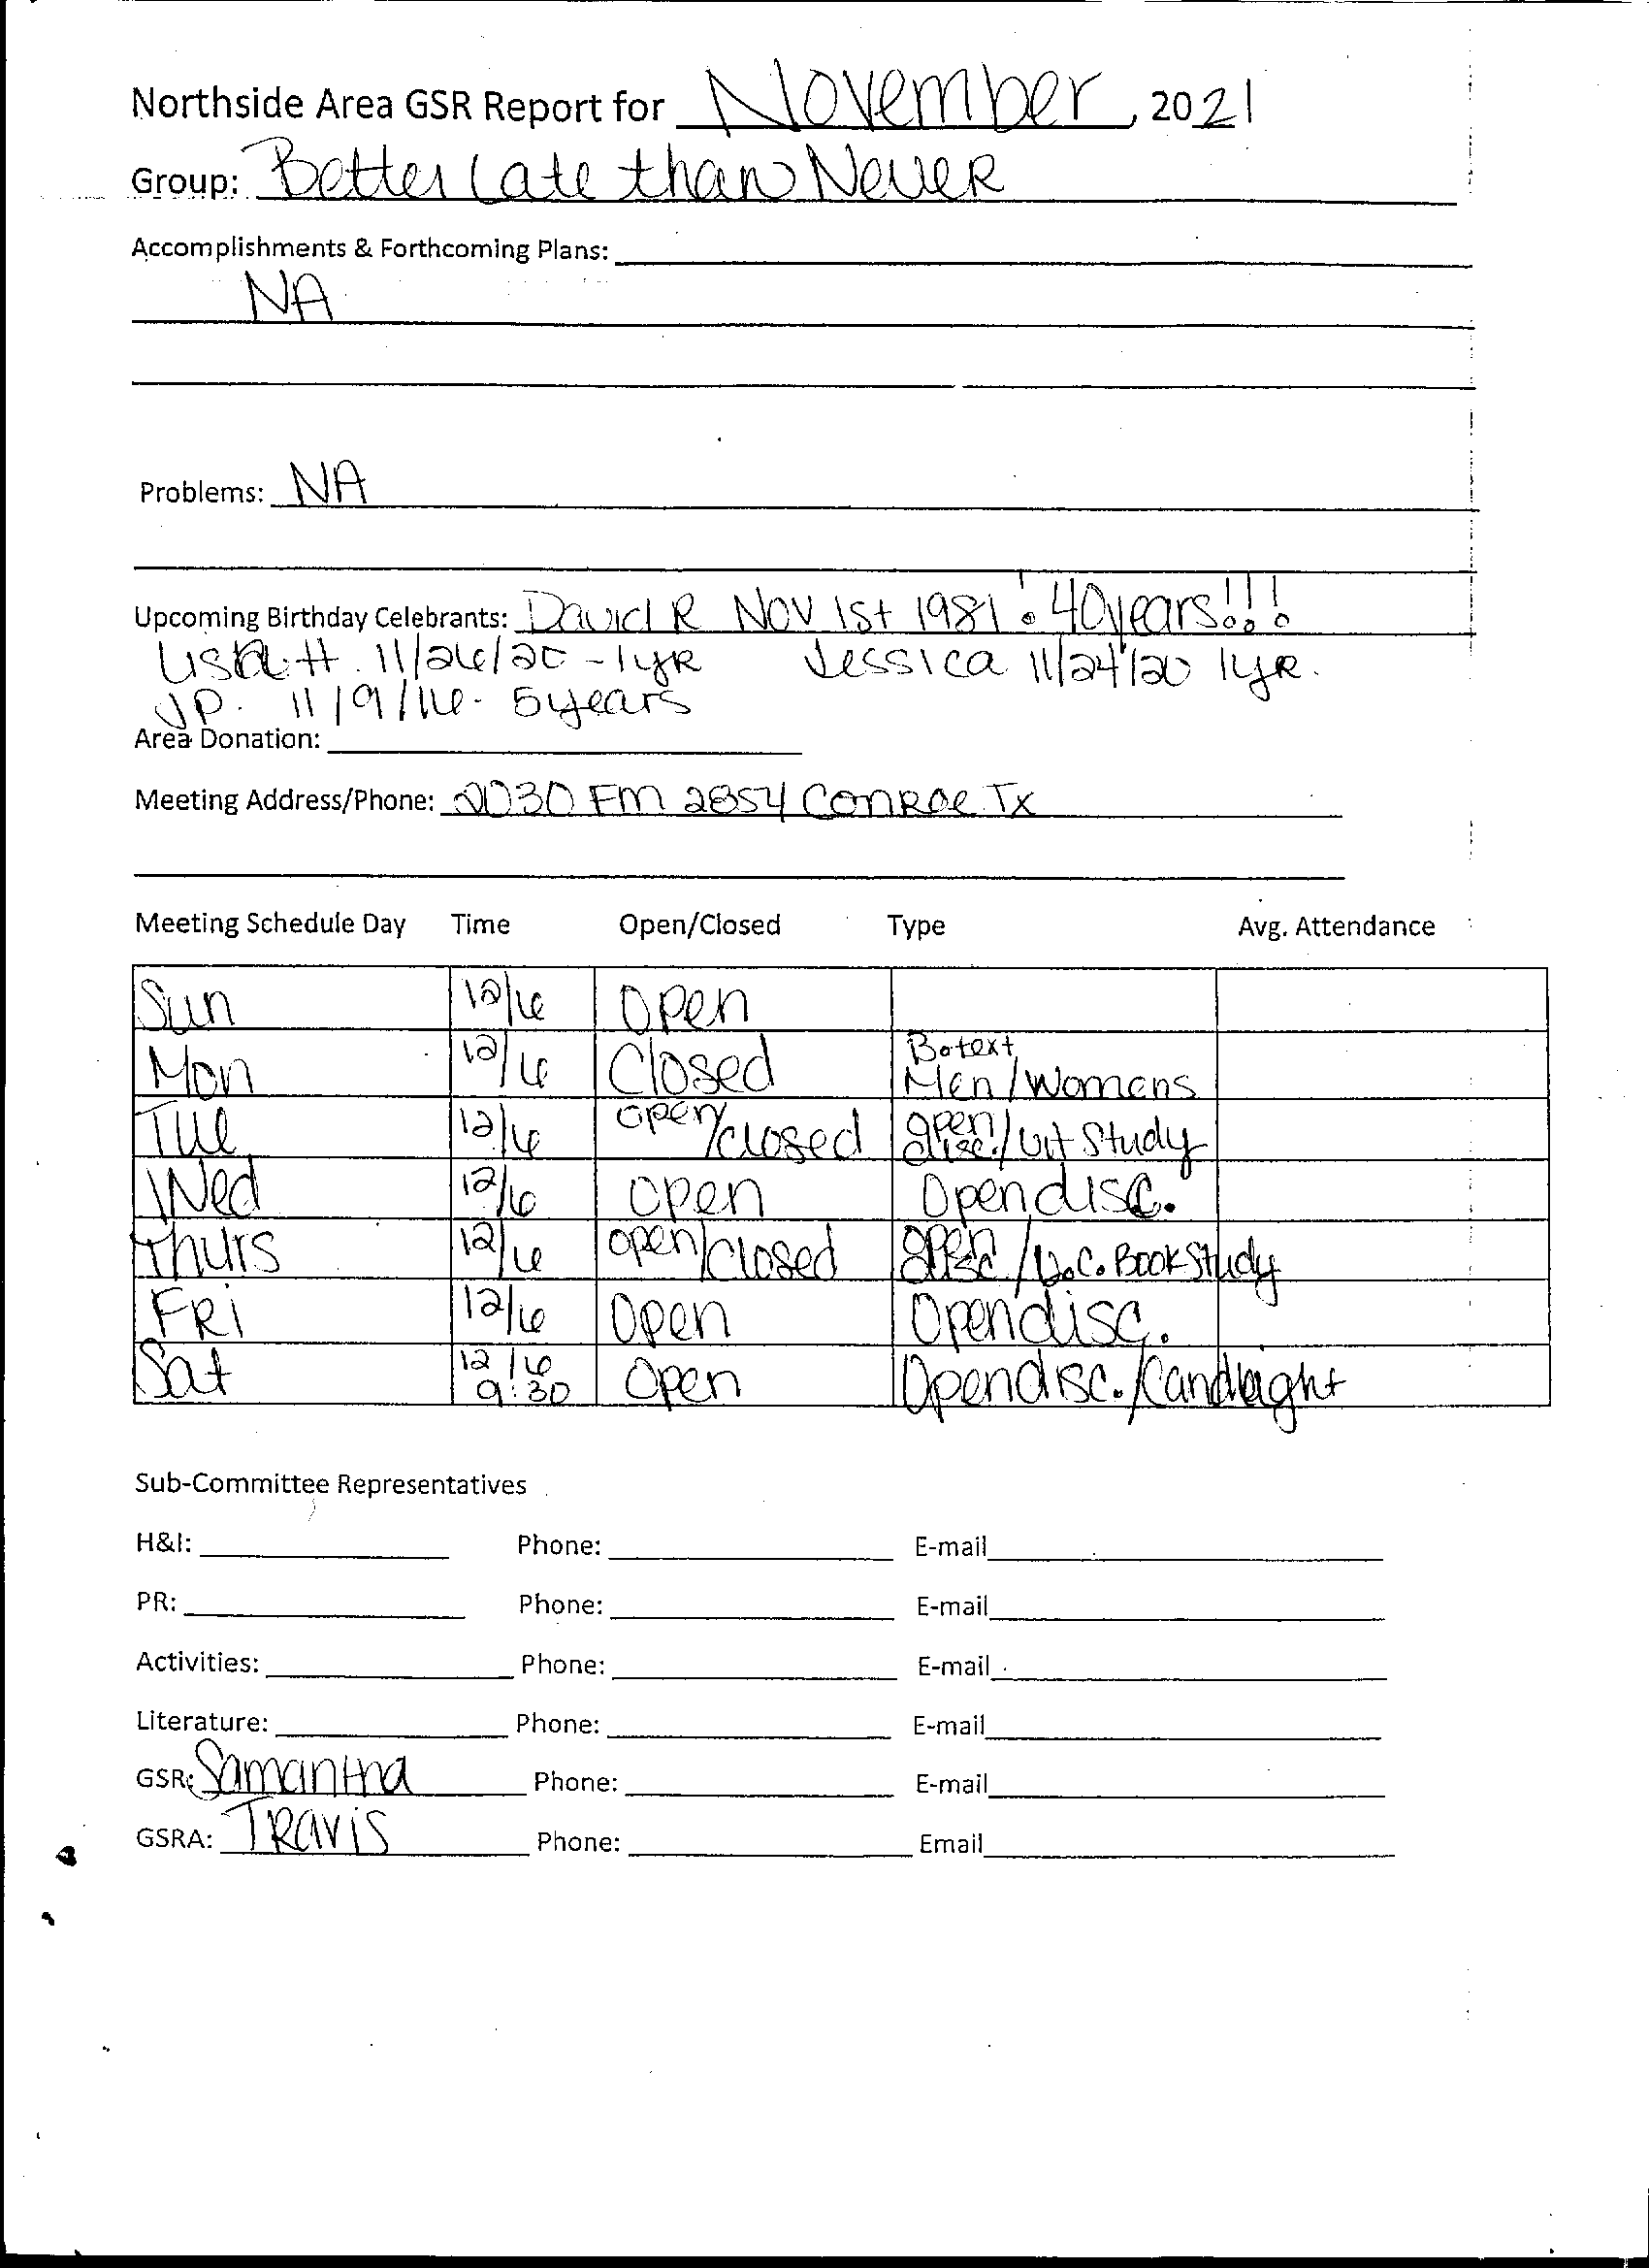 Northside Area GSR Report for November, 2021
Group: Better Late than Never
Accomplishments & Forthcoming Plans:
NA
Problems: NA
Upcoming Birthday Celebrants: David R Nov 1st 1981 : 40 years!!!
Lisa H. 11/26/20 - 1yR Jessica 11/24/20 1yR.
JP. 11/9/16 - 5 years
Area Donation:
Meeting Address/Phone: 2030 FM 2854 Conroe Tx
Meeting Schedule Day Time Open/Closed Type Avg. Attendance
Sun 12/6 Open
Mon 12/6 Closed Men/Womens
Tue 12/6 open/closed open disc./Lit Study
Wed 12/6 open Open disc.
Thurs 12/6 open/closed open disc / Book Study
FRi 12/6 Open Open disc.
Sat 12/6 9:30 Open Open disc./Candlelight
Sub-Committee Representatives
H&I: Phone: E-mail
PR: Phone: E-mail
Activities: Phone: E-mail
Literature: Phone: E-mail
GSR: Samantha Phone: E-mail
GSRA: TRavis Phone: Email